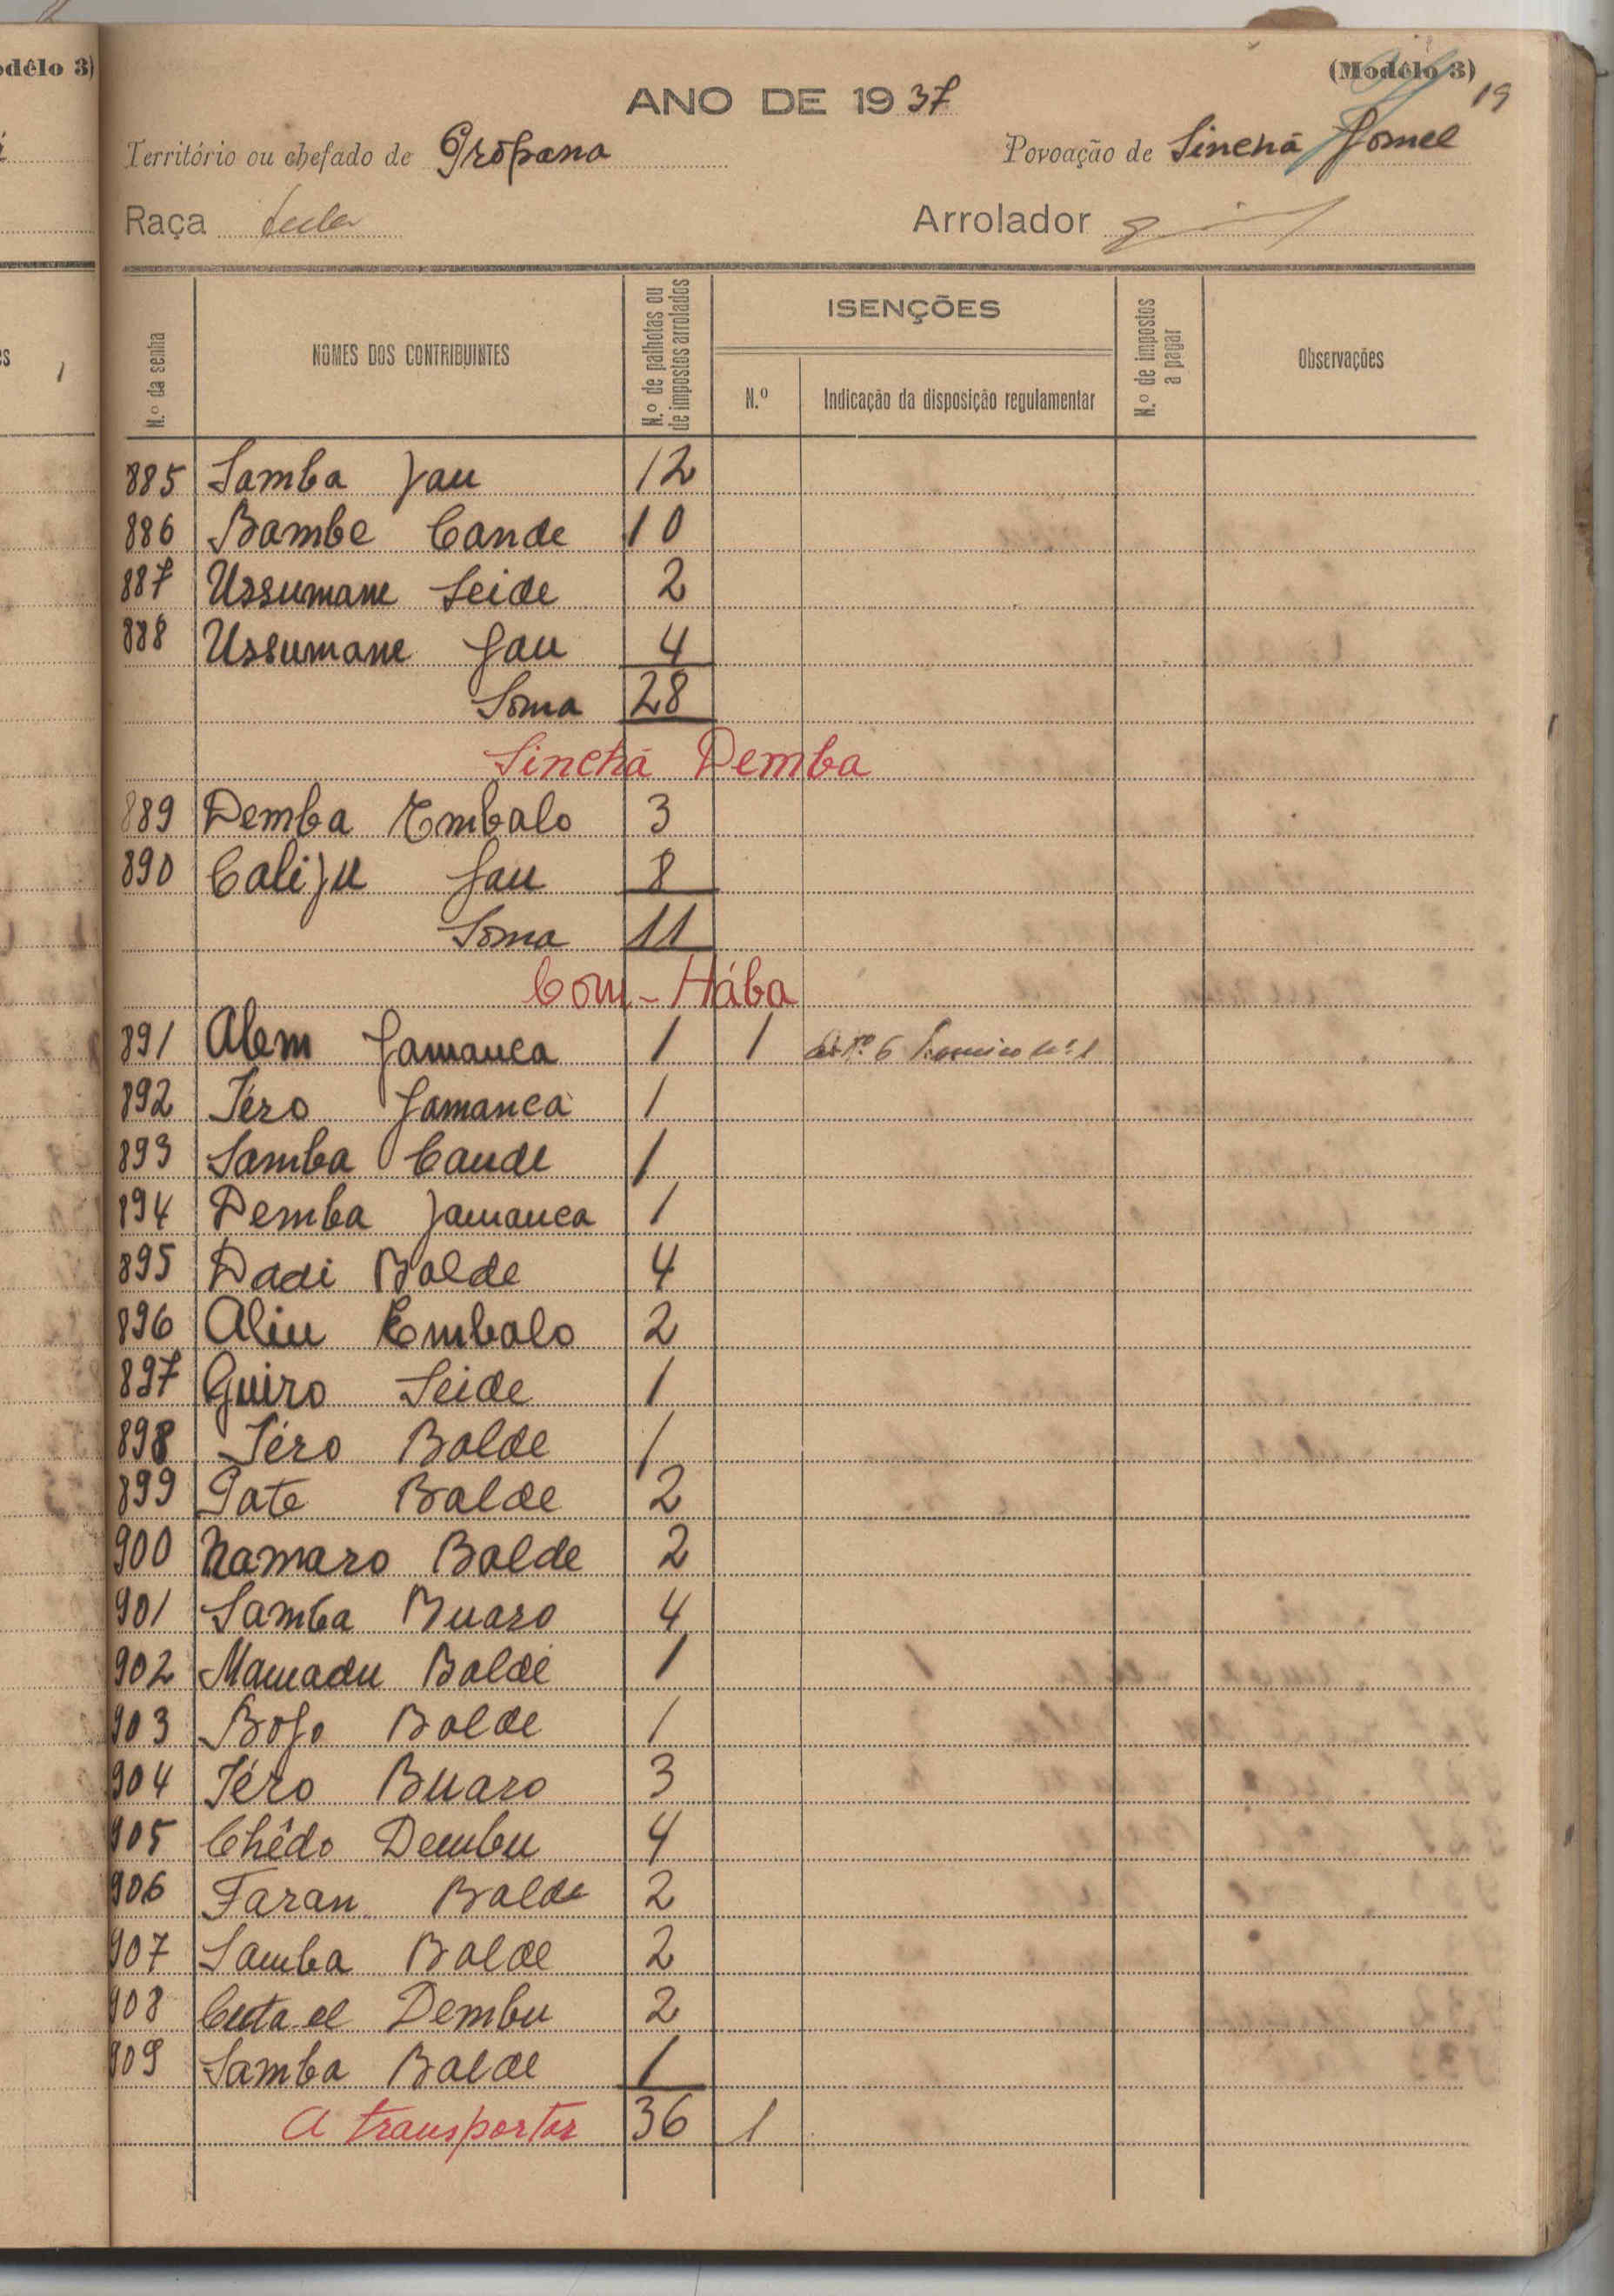 (Modêlo 3)
19
ANO DE 1937
Território ou chefado de Gropana
Povoação de Sinchã Jomel
Raça
Arrolador
N.º da senha
NOMES DOS CONTRIBUINTES
N.º de palhotas ou de impostos arrolados
ISENÇÕES
N.º
Indicação da disposição regulamentar
N.º de impostos a pagar
Observações
885 Samba Jau 12
886 Bambe Cande 10
887 Ussumane Seide 2
888 Ussumane Jau 4
Soma 28
Sinchã Demba
889 Demba Embalo 3
890 Caliju Jau 8
Soma 11
Com-Hába
891 Alem Jamanca 1 1
892 Téro Jamanca 1
893 Samba Cande 1
894 Demba Jamanca 1
895 Dadi Balde 4
896 Aliu Embalo 2
897 Guiro Seide 1
898 Téro Balde 1
899 Pate Balde 2
900 Namaro Balde 2
901 Samba Buaro 4
902 Mamadu Balde 1
903 Bojo Balde 1
904 Téro Buaro 3
905 Chêdo Dembu 4
906 Faran Balde 2
907 Samba Balde 2
908 Dembu 2
909 Samba Balde 1
A transportar 36 1